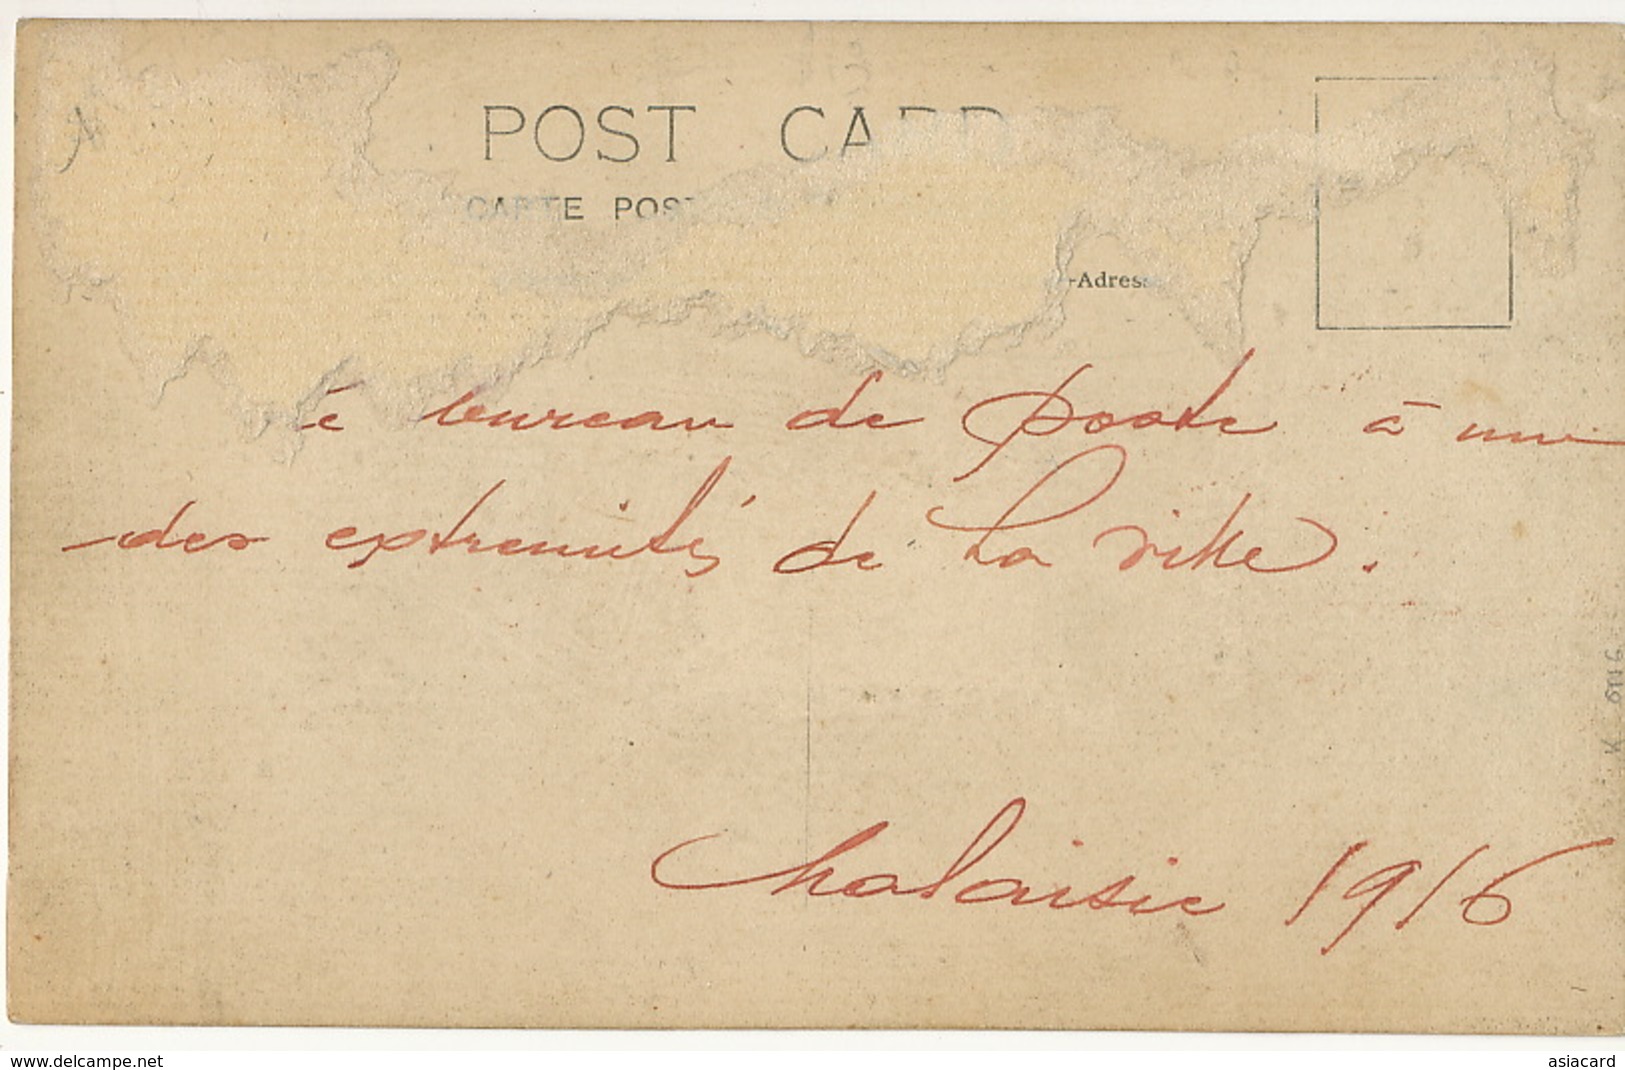 POST CARD
CARTE POST
-Adresse
Le bureau de poste à une
des extremités de La ville.
Malaisie 1916
www.delcampe.net
asiacard